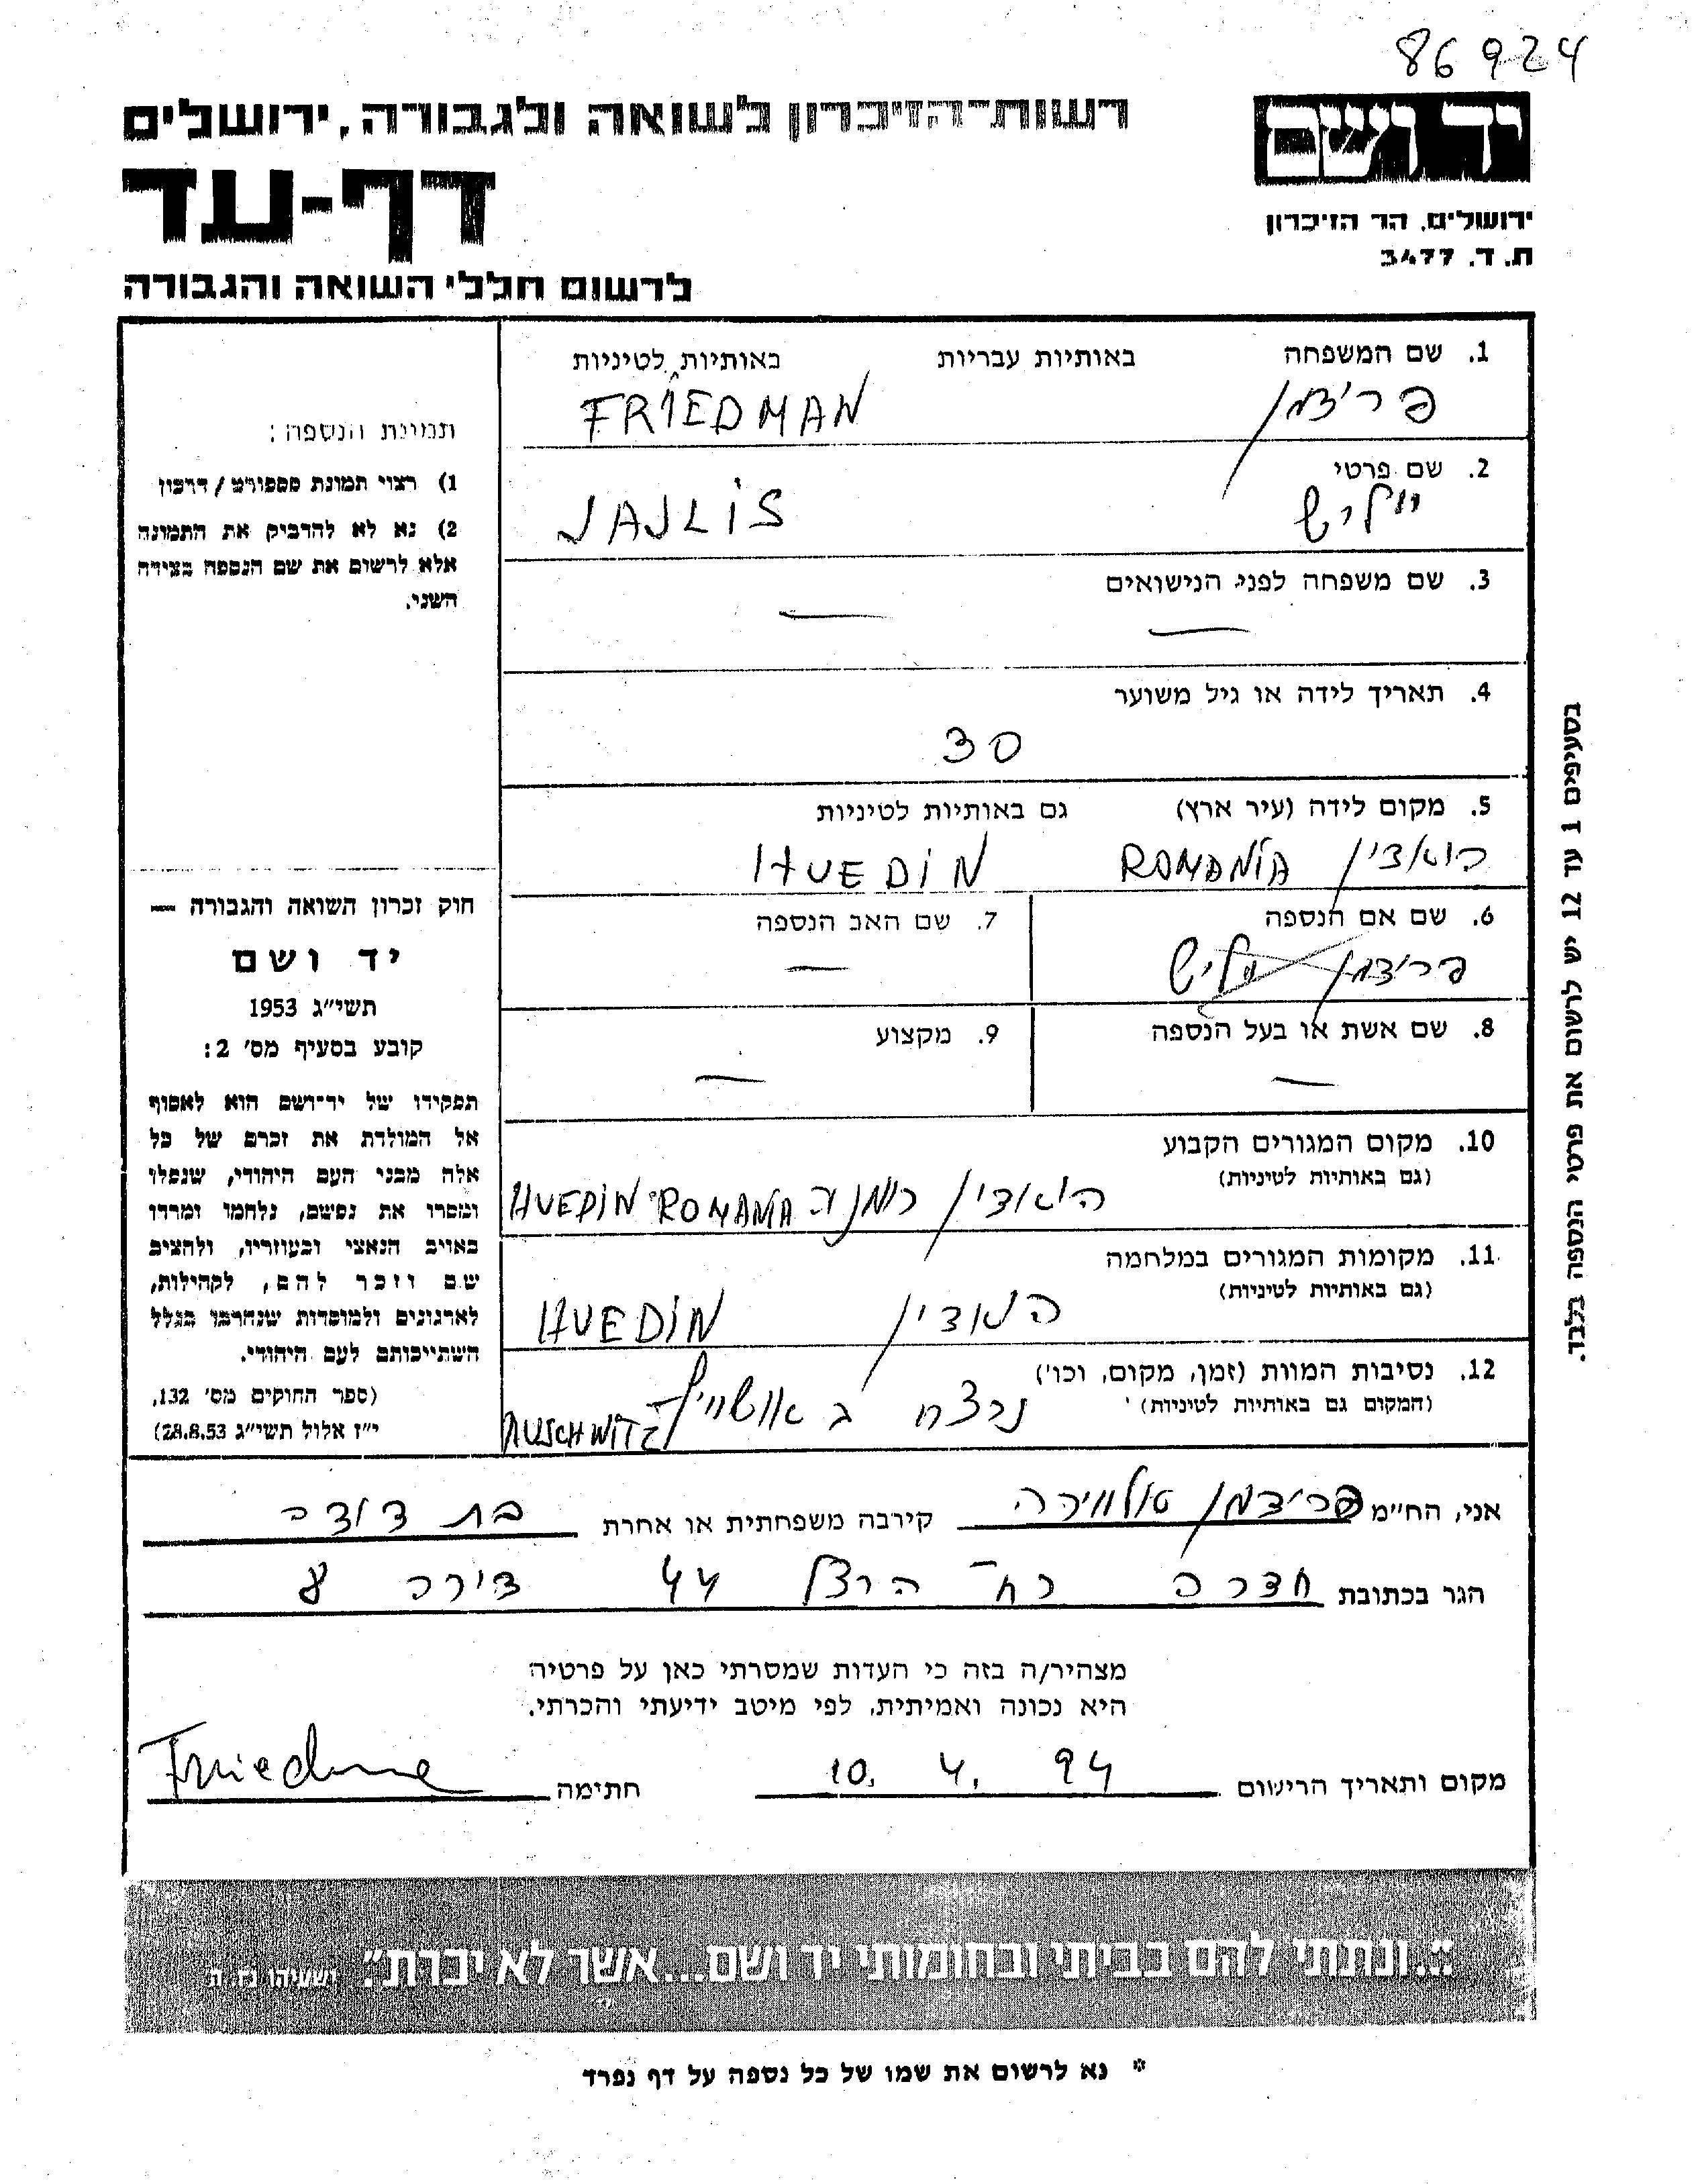 86924
יד ושם
ירושלים. הר הזיכרון
ת. ד. 3477
רשות-הזיכרון לשואה ולגבורה, ירושלים
דף-עד
לרשום חללי השואה והגבורה
1. שם המשפחה באותיות עבריות באותיות לטיניות
פרידמן FRIEDMAN
2. שם פרטי
JAJLIS
3. שם משפחה לפני הנישואים
— —
4. תאריך לידה או גיל משוער
30
5. מקום לידה (עיר ארץ) גם באותיות לטיניות
הואדין ROMANIA HUEDIN
6. שם אם הנספה 7. שם האב הנספה
פרידמן —
8. שם אשת או בעל הנספה 9. מקצוע
— —
10. מקום המגורים הקבוע
(גם באותיות לטיניות)
הואדין רומניה HUEDIN ROMANIA
11. מקומות המגורים במלחמה
(גם באותיות לטיניות)
HUEDIN
12. נסיבות המוות (זמן, מקום, וכו')
(המקום גם באותיות לטיניות)
נרצח באושוויץ AUSCHWITZ
תמונת הנספה:
1) רצוי תמונת פספורט / דרכון
2) נא לא להדביק את התמונה
אלא לרשום את שם הנספה בצידה
השני.
חוק זכרון השואה והגבורה —
יד ושם
תשי״ג 1953
קובע בסעיף מס׳ 2:
תפקידו של יד־ושם הוא לאסוף
אל המולדת את זכרם של כל
אלה מבני העם היהודי, שנפלו
ומסרו את נפשם, נלחמו ומרדו
באויב הנאצי ובעוזריו, ולהציב
שם וזכר להם, לקהילות,
לארגונים ולמוסדות שנחרבו בגלל
השתייכותם לעם היהודי.
(ספר החוקים מס׳ 132,
י״ז אלול תשי״ג 28.8.53)
בסעיפים 1 עד 12 יש לרשום את פרטי הנספה בלבד.
אני, הח״מ פרידמן קירבה משפחתית או אחרת בת דודה
הגר בכתובת חדרה רח׳ הרצל 44 דירה 8
מצהיר/ה בזה כי העדות שמסרתי כאן על פרטיה
היא נכונה ואמיתית, לפי מיטב ידיעתי והכרתי.
מקום ותאריך הרישום 10. 4. 94 חתימה
״...ונתתי להם בביתי ובחומותי יד ושם...אשר לא יכרת״. ישעיהו נו, ה
* נא לרשום את שמו של כל נספה על דף נפרד